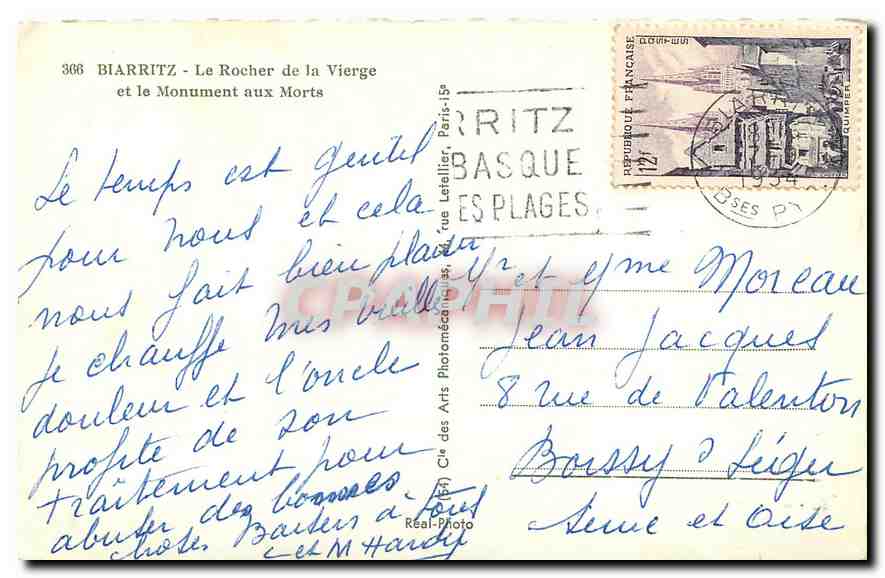 366 BIARRITZ - Le Rocher de la Vierge
et le Monument aux Morts
Le temps est gentil
pour nous et cela
nous fait bien plaisir
je chauffe mes vieilles
douleur et l'oncle
profite de son
traitement pour
abuser des bonnes
choses Baisers à tous
et M Hardy
(64) Cie des Arts Photomécaniques, rue Letellier, Paris-15e
Réal-Photo
RRITZ
BASQUE
ES PLAGES
REPUBLIQUE FRANÇAISE
POSTES
12f
QUIMPER
BIARRITZ
1954
Bses PY
CPAPHIL
Mr et Mme Moreau
Jean Jacques
8 rue de Valenton
Boissy St Léger
Seine et Oise